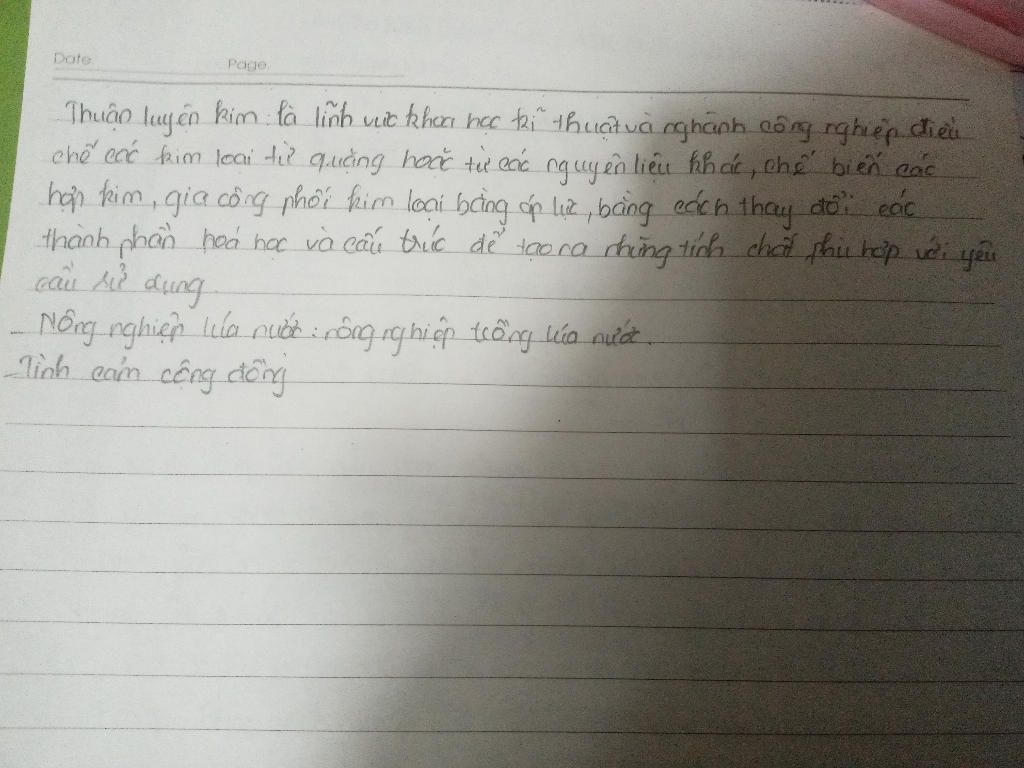 Date.
Page.
Thuận luyện kim: là lĩnh vực khoa học kĩ thuật và nghành công nghiệp điều
chế các kim loại từ quặng hoặc từ các nguyên liệu khác, chế biến các
hợp kim, gia công phối kim loại bằng áp lực, bằng cách thay đổi các
thành phần hoá học và cấu trúc để tạo ra những tính chất phù hợp với yêu
cầu sử dụng.
- Nông nghiệp lúa nước: nông nghiệp trồng lúa nước.
- Tình cảm cộng đồng